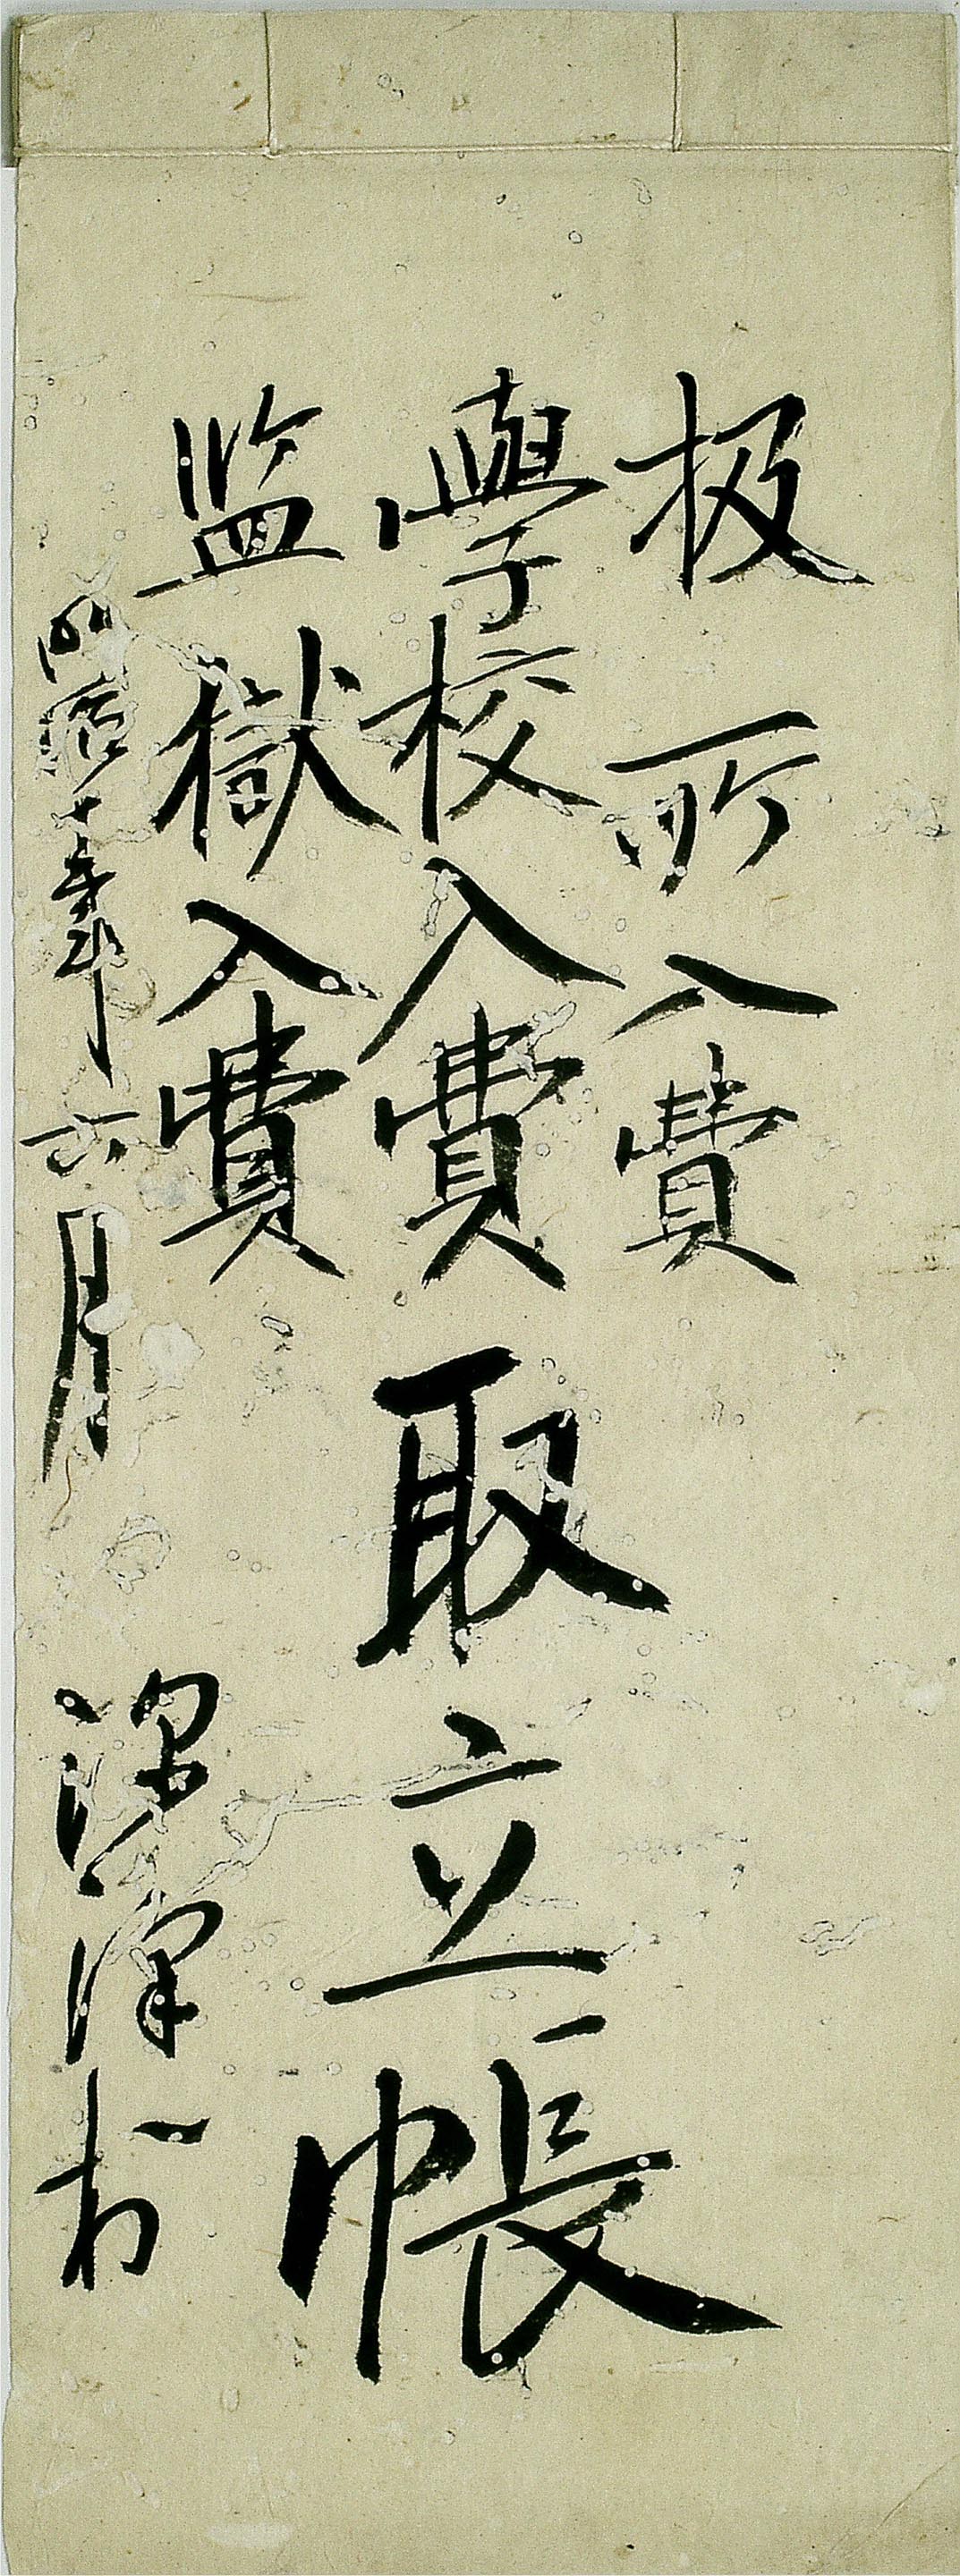 扱所入費
學校入費
監獄入費
取立帳
明治十年六月
深澤村